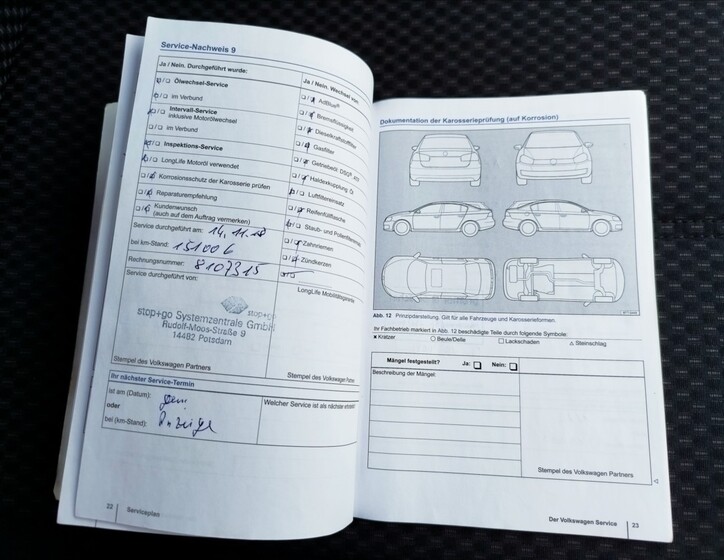 Service-Nachweis 9
Ja / Nein. Durchgeführt wurde:
Ölwechsel-Service
im Verbund
Intervall-Service
inklusive Motorölwechsel
im Verbund
Inspektions-Service
LongLife Motoröl verwendet
Korrosionsschutz der Karosserie prüfen
Reparaturempfehlung
Kundenwunsch
(auch auf dem Auftrag vermerken)
Service durchgeführt am: 14.11.18
bei km-Stand: 151006
Rechnungsnummer: 8107315
Service durchgeführt von:
stop+go
stop+go Systemzentrale GmbH
Rudolf-Moos-Straße 9
14482 Potsdam
Stempel des Volkswagen Partners
Ja / Nein. Wechsel von:
AdBlue®
Bremsflüssigkeit
Dieselkraftstofffilter
Gasfilter
Getriebeöl DSG®
Haldexkupplung Öl
Luftfiltereinsatz
Reifenfüllflasche
Staub- und Pollenfilter
Zahnriemen
Zündkerzen
LongLife Mobilitätsgarantie
Stempel des Volkswagen
Ihr nächster Service-Termin
ist am (Datum):
oder
bei (km-Stand): Anzeige
Welcher Service ist als nächster
22 Serviceplan
Dokumentation der Karosserieprüfung (auf Korrosion)
Abb. 12 Prinzipdarstellung. Gilt für alle Fahrzeuge und Karosserieformen.
Ihr Fachbetrieb markiert in Abb. 12 beschädigte Teile durch folgende Symbole:
x Kratzer ○ Beule/Delle □ Lackschaden △ Steinschlag
Mängel festgestellt? Ja: □ Nein: □
Beschreibung der Mängel:
Stempel des Volkswagen Partners
Der Volkswagen Service 23